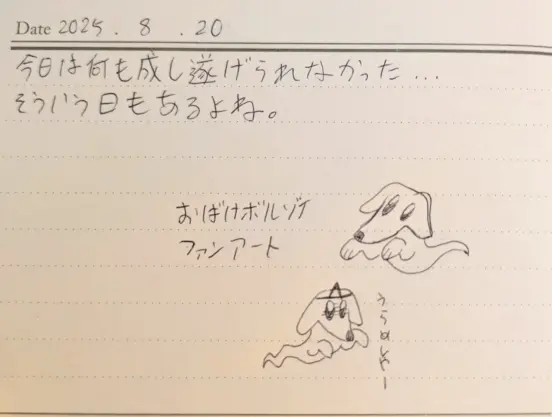 Date 2025.8.20
今日は何も成し遂げられなかった…
そういう日もあるよね。
おばけボルゾイ
ファンアート
うらめしやー